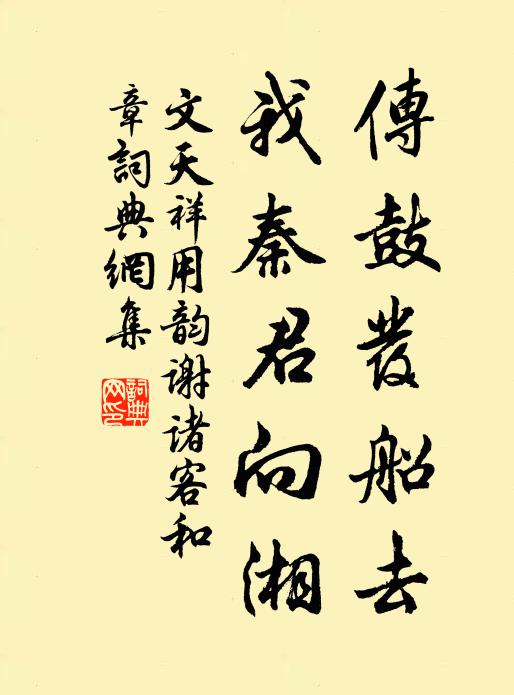 傳鼓發船去
我秦君向湘
文天祥用韵謝諸客和
章詞典網集
詞典网印